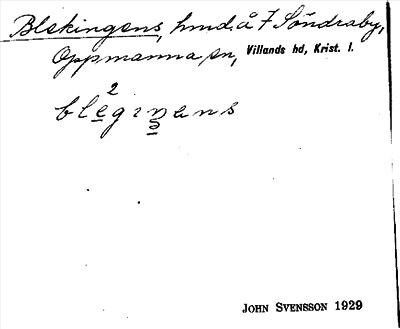 Blekingens, hmd. å 7 Söndraby,
Oppmanna sn, Villands hd, Krist. l.
2
blegınens
JOHN SVENSSON 1929